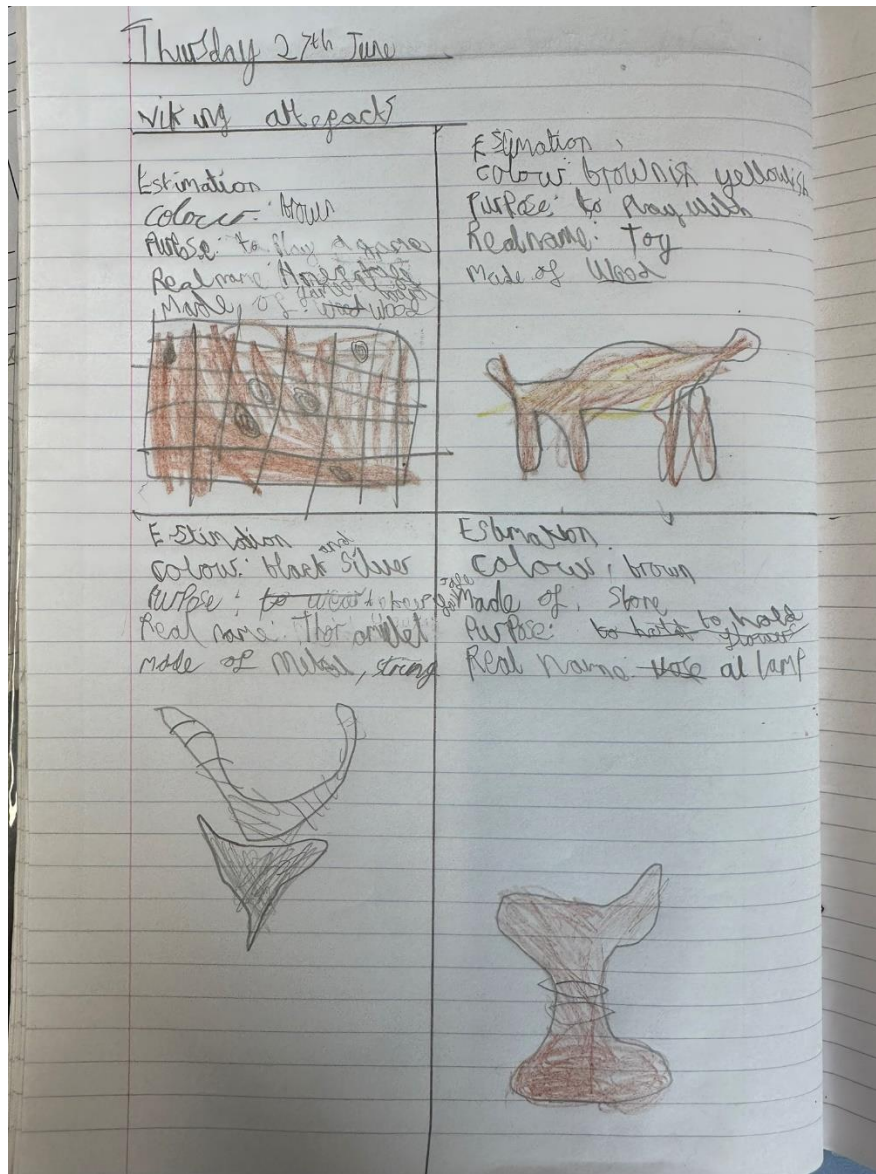 Thursday 27th June
Viking attepacks
Estimation
colour: brown
Purpose: to play a game
Real name:
Made of: wood
Estimation
colour: brownish yellowish
Purpose: to play with
Real name: Toy
Made of Wood
Estimation
colour: black and Silver
Purpose: to wear to keep safe
Real name: Thor amulet
made of Metal, string
Estimation
colour: brown
Made of: Stone
Purpose: to hold to hold flowers
Real name: Vase al lamp